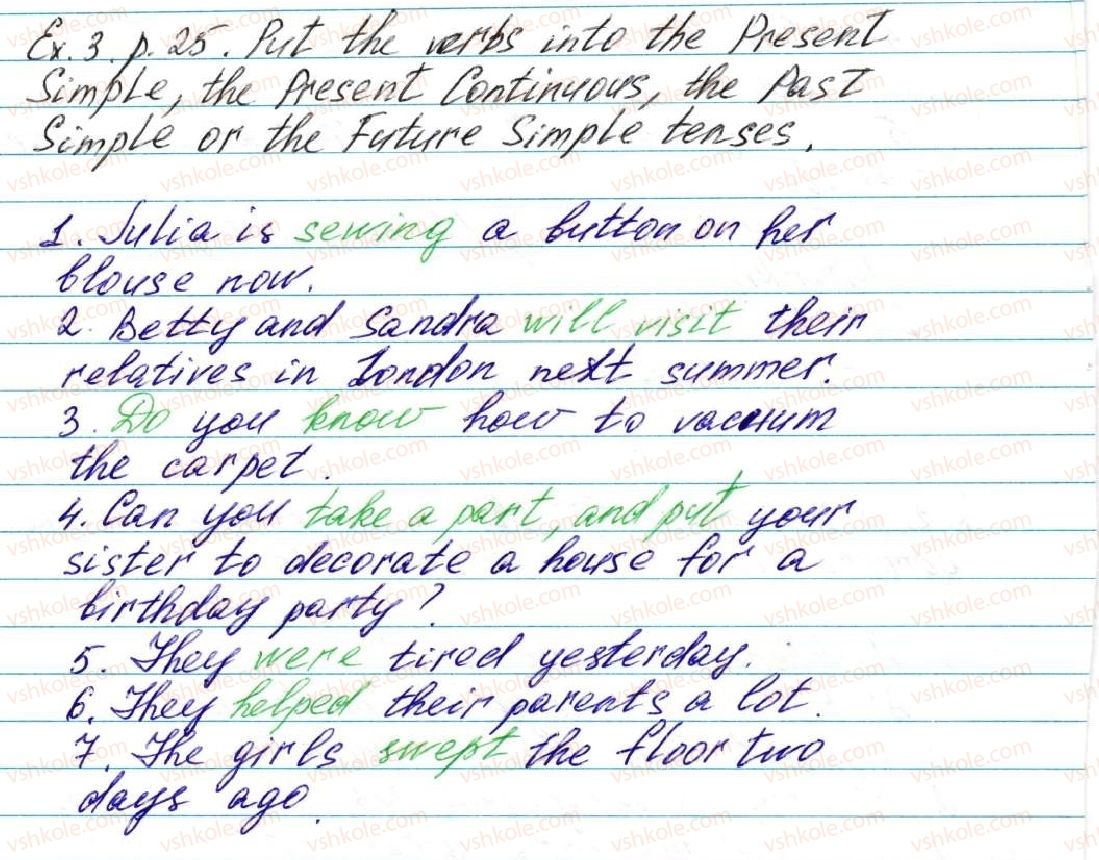 Ex. 3. p. 25. Put the verbs into the Present
Simple, the Present Continuous, the Past
Simple or the Future Simple tenses.
1. Julia is sewing a button on her
blouse now.
2. Betty and Sandra will visit their
relatives in London next summer.
3. Do you know how to vacuum
the carpet.
4. Can you take a part, and put your
sister to decorate a house for a
birthday party?
5. They were tired yesterday.
6. They helped their parents a lot.
7. The girls swept the floor two
days ago.
vshkole.com